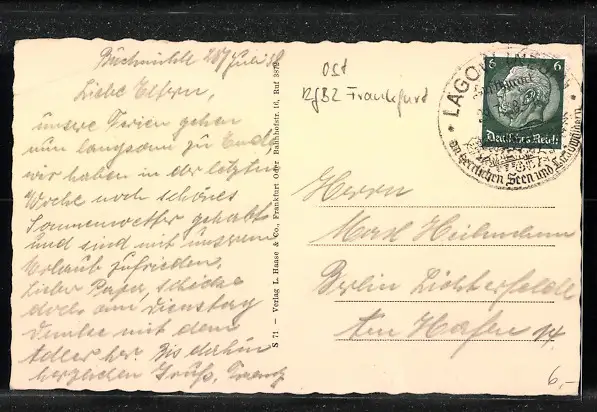 Buchmühle 28. Juli 38
Liebe Eltern,
unsere Ferien gehen
nun langsam zu Ende,
wir haben in der letzten
Woche noch schönes
Sonnenwetter gehabt
und sind mit unserem
Urlaub zufrieden.
Lieber Papa, schicke
doch am Dienstag
mit dem
her. Bis dahin
herzlichen Gruß,
S 71 – Verlag L. Haase & Co., Frankfurt Oder Bahnhofstr. 16, Ruf 3879
Ost
RgBZ Frankfurt
6 6
Deutsches Reich
LAGOW
an herrlichen Seen und Laubwäldern
Herrn
Berlin Lichterfelde
14
6,-